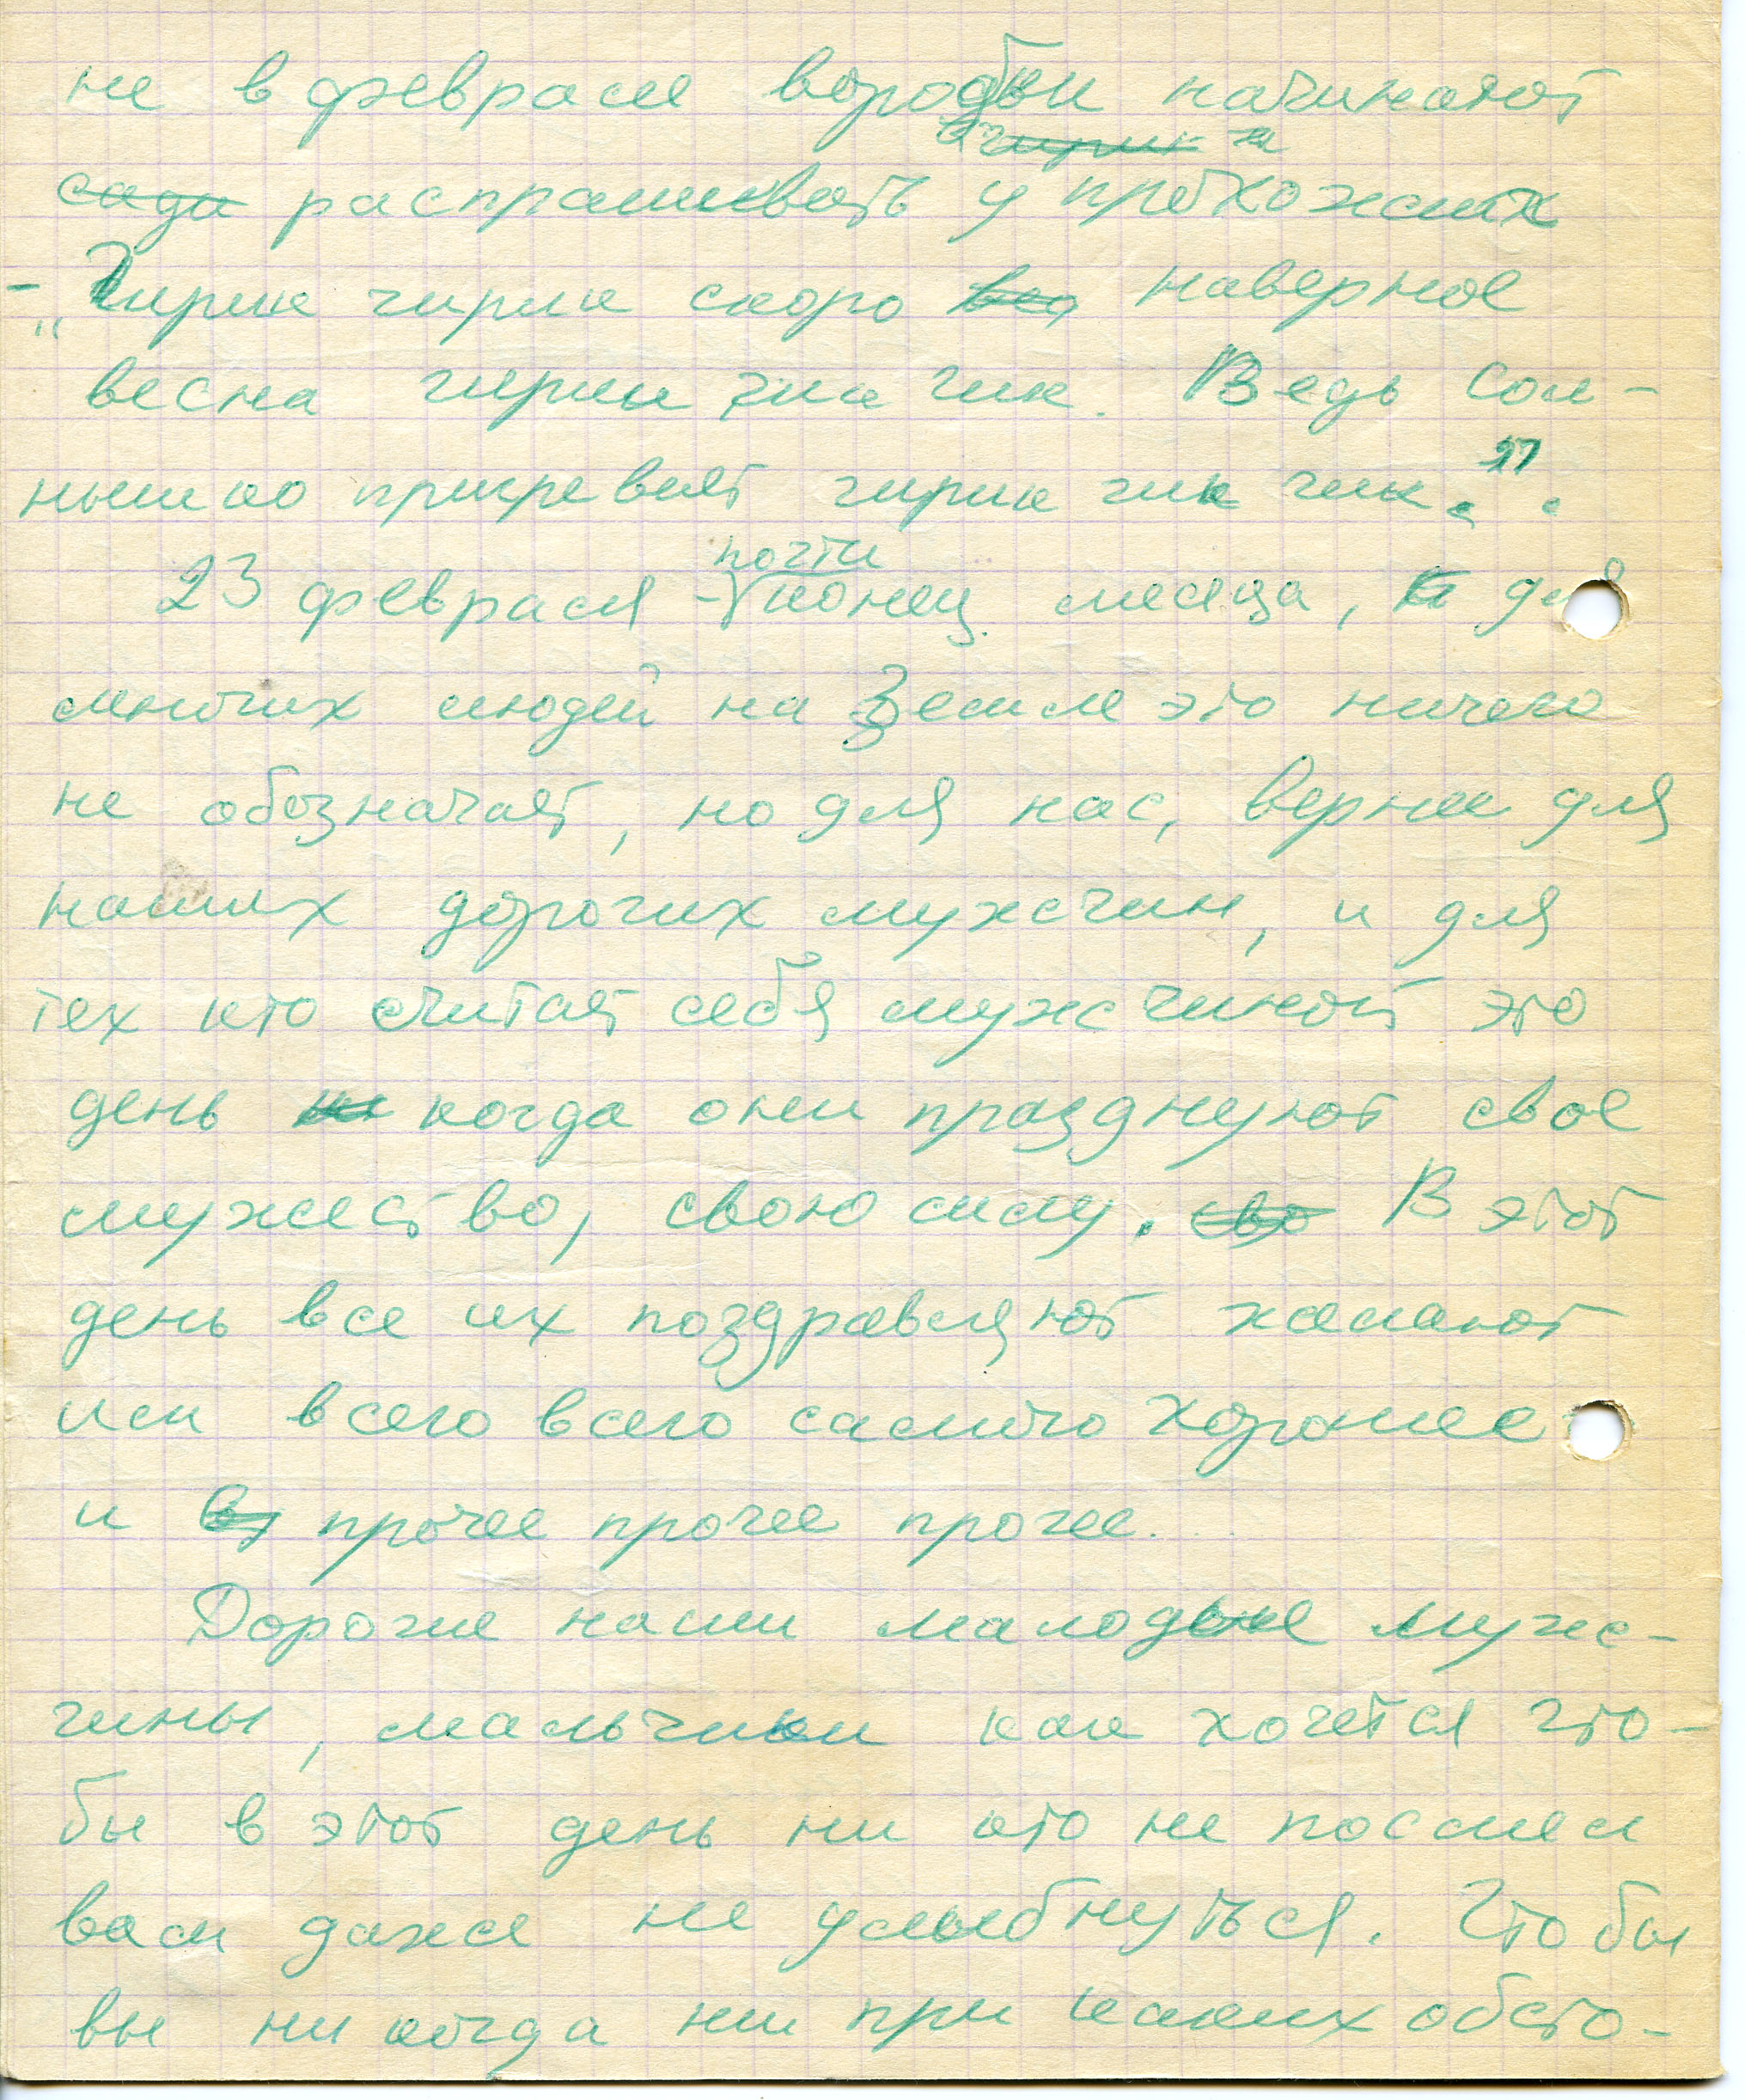 не в феврале воробьи начинают
чирик
сади распрашивать у прохожих
- „Чирик чирик скоро вес наверное
весна чирик чик чик. Ведь сол-
нышко пригревает чирик чик чик.".
почти
23 февраля - конец месяца, и для
многих людей на Земле это ничего
не обозначает, но для нас, вернее для
наших дорогих мужчин, и для
тех кто считает себя мужчиной это
день когда они празднуют свое
мужество, свою силу. сво В этот
день все их поздравляют желают
им всего всего самого хорошее
и прочее прочее прочее...
Дорогие наши малодые муж-
чины, мальчики как хочется что-
бы в этот день ни кто не посмел
вам даже не улыбнуться. Чтобы
вы ни когда ни при каких обсто-